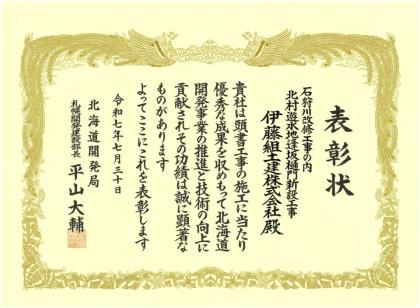 表彰状
石狩川改修工事の内
北村遊水地逢坂樋門新設工事
伊藤組土建株式会社 殿
貴社は頭書工事の施工に当たり
優秀な成果を収めもって北海道
開発事業の推進と技術の向上に
貢献されその功績は誠に顕著な
ものがあります
よってここにこれを表彰します
令和七年七月三十日
北海道開発局
札幌開発建設部長 平山大輔